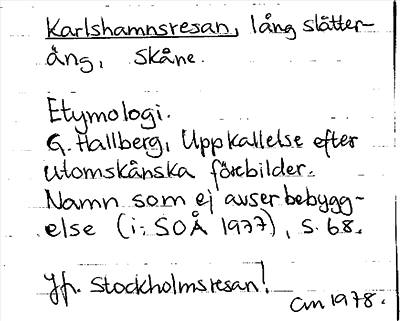 Karlshamnsresan, lång slåtter-
äng, Skåne.
Etymologi.
G. Hallberg, Uppkallelse efter
utomskånska förebilder.
Namn som ej avser bebygg-
else (i: SOÅ 1977), s. 68.
Jfr. Stockholmsresan!
Cm 1978.